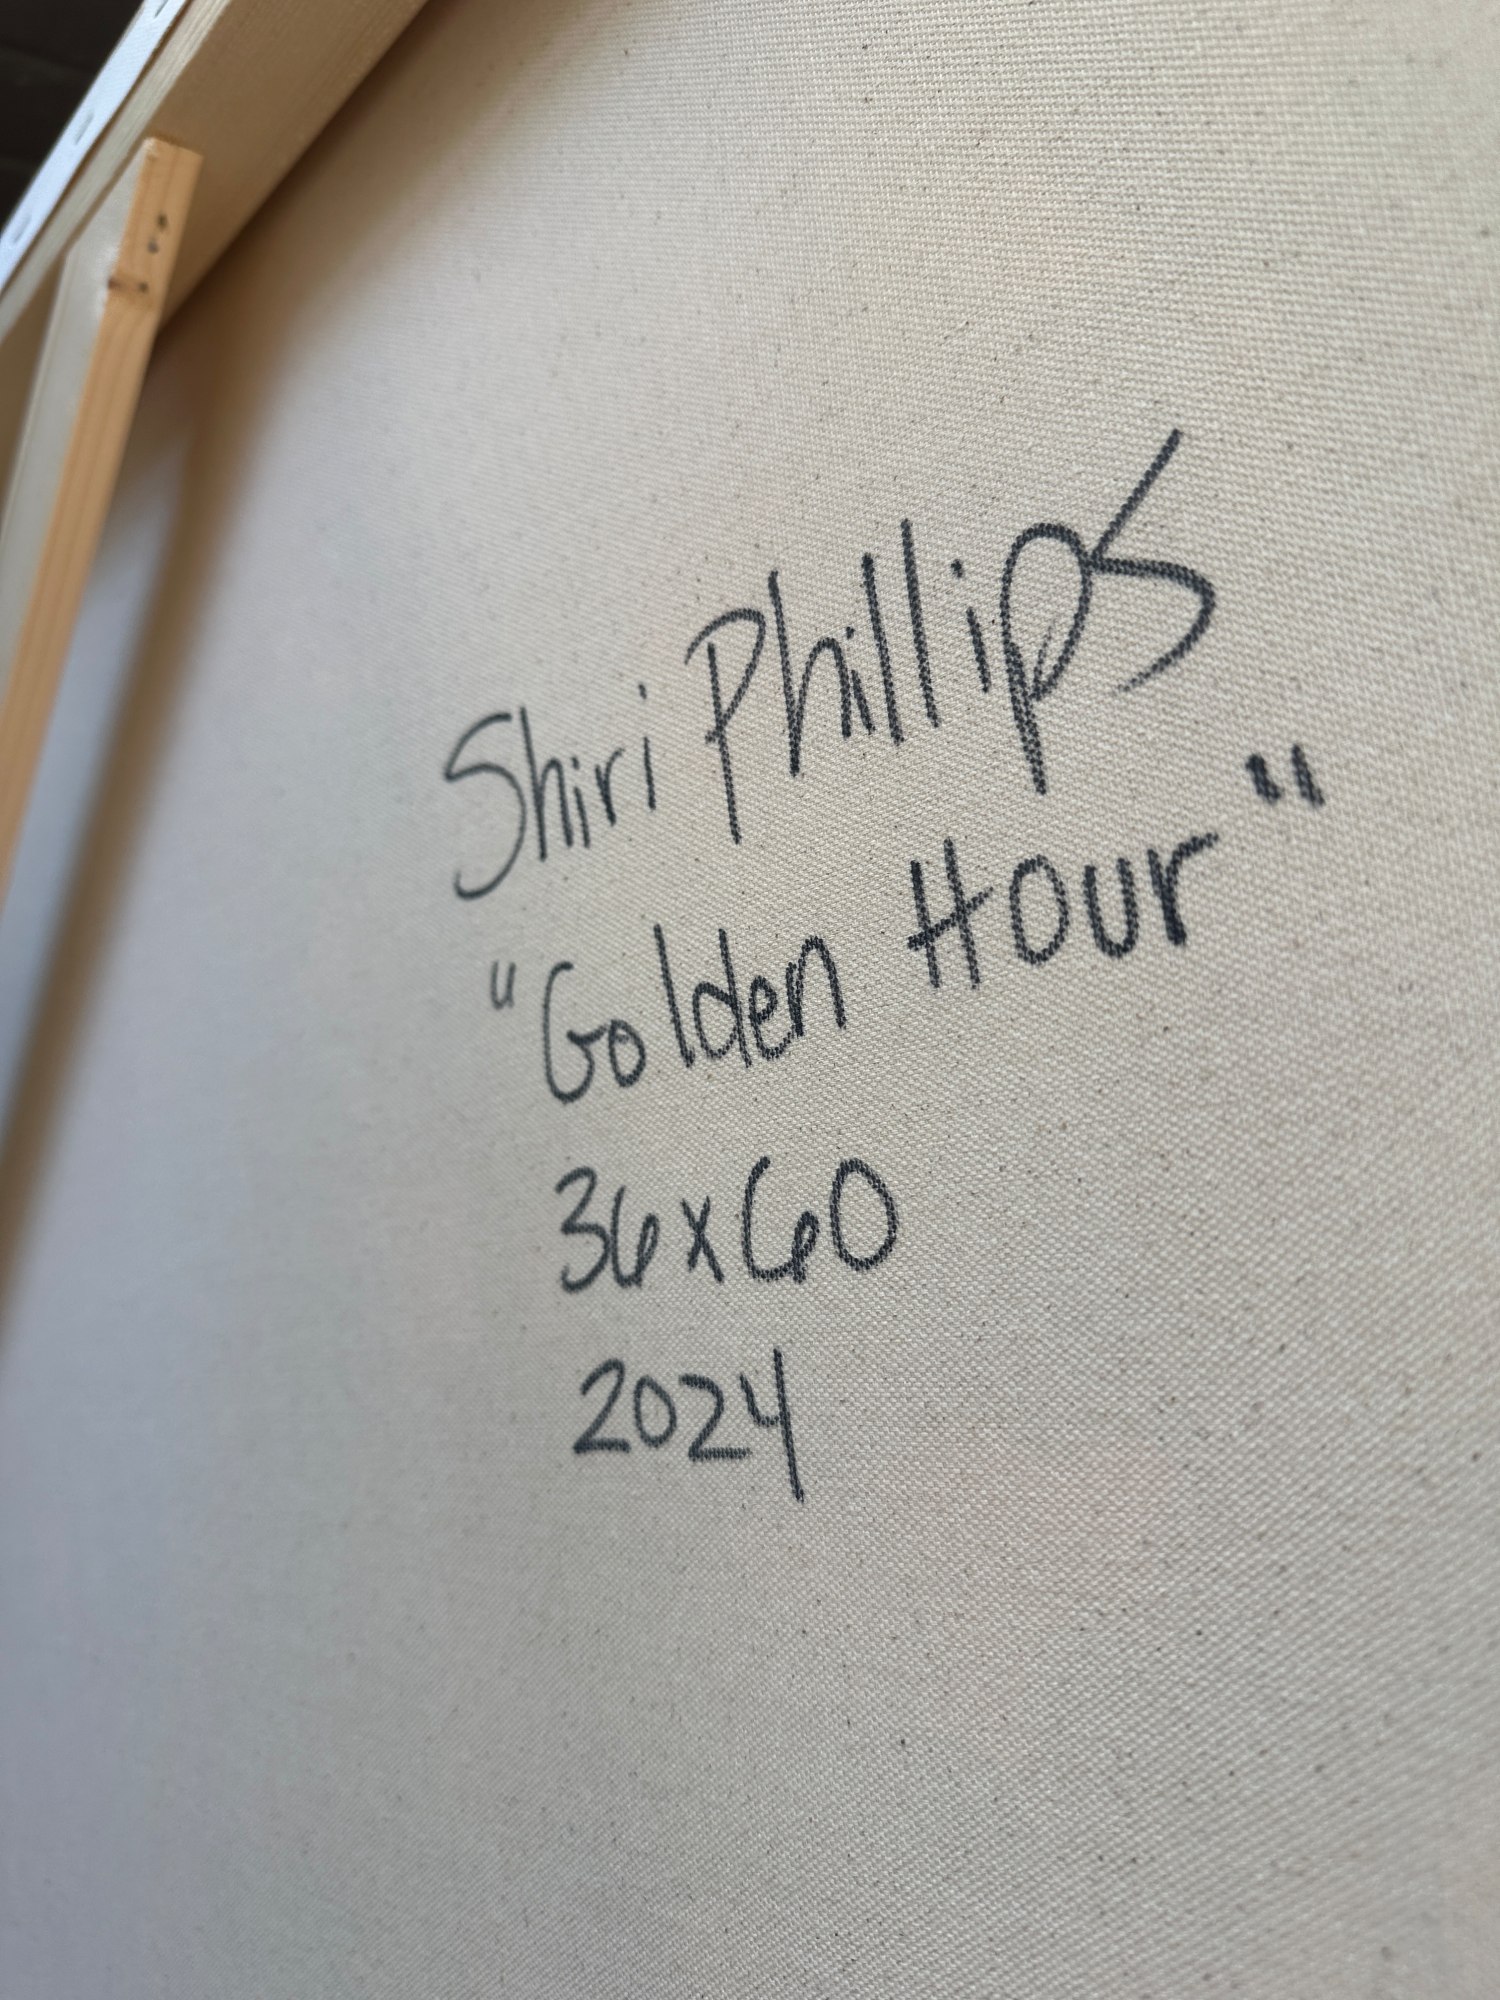 Shiri Phillips
"Golden Hour"
36x60
2024